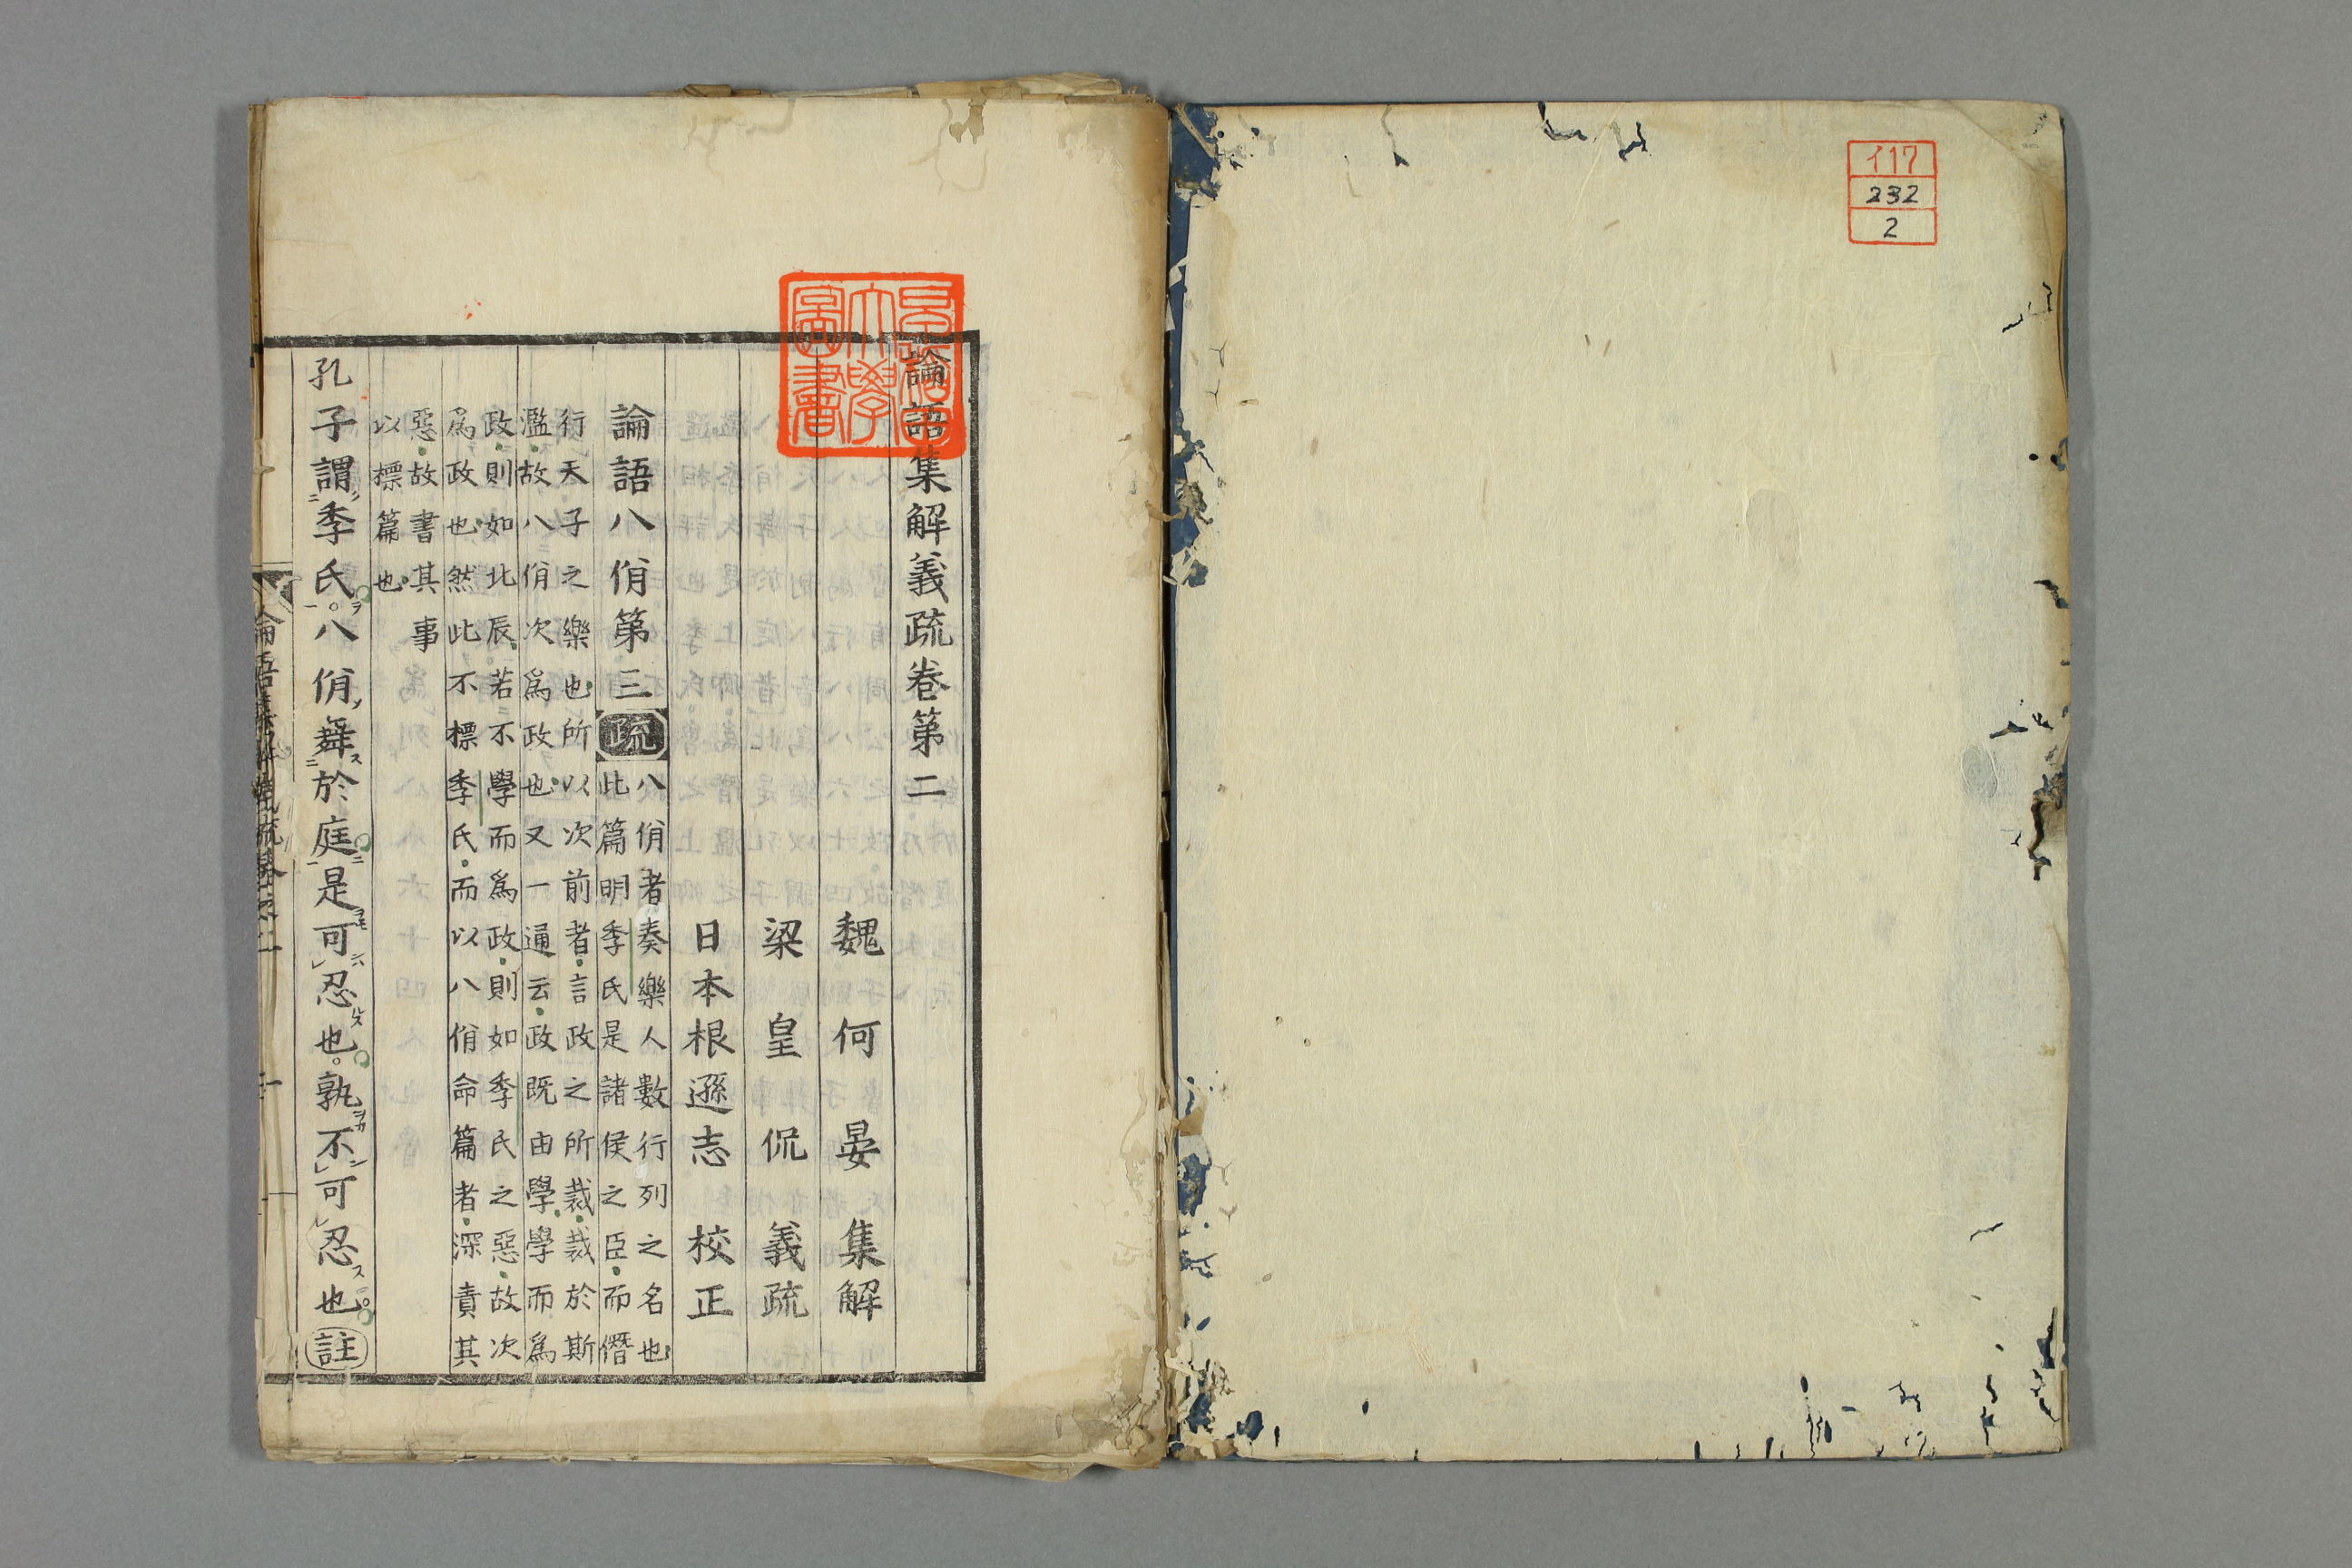 イ17
232
2
論語集解義疏卷第二
魏何晏集解
梁皇侃義疏
日本根遜志校正
論語八佾第三疏
八佾者奏樂人數行列之名也
此篇明季氏是諸侯之臣而僭
行天子之樂也所以次前者言政之所裁裁於斯
濫故八佾次爲政也又一通云政既由學學而爲
政則如北辰若不學而爲政則如季氏之惡故次
爲政也然此不標季氏而以八佾命篇者深責其
惡故書其事
以標篇也
孔子謂季氏八佾舞於庭是可忍也孰不可忍也註